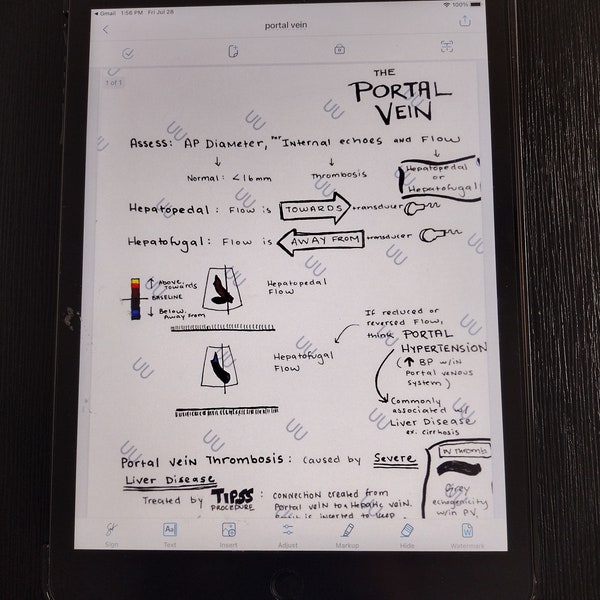 Gmail 1:56 PM Fri Jul 28
100%
portal vein
1 of 1
THE
PORTAL
VEIN
Assess: AP Diameter, Internal echoes and Flow
Normal: <16mm
Thrombosis
Hepatopedal
or
Hepatofugal
Hepatopedal: Flow is TOWARDS transducer
Hepatofugal: Flow is AWAY FROM transducer
↑ Above: Towards
BASELINE
↓ Below: Away from
Hepatopedal
Flow
Hepatofugal
Flow
If reduced or
reversed Flow,
think PORTAL
HYPERTENSION
(↑ BP w/in
portal venous
system)
Commonly
associated w/
Liver Disease
ex. cirrhosis
Portal Vein Thrombosis: Caused by Severe
Liver Disease
Treated by TIPSS
PROCEDURE
: connection created from
Portal vein to Hepatic vein.
is inserted to keep
PV Thromb
Grey
echogenicity
w/in PV.
UU
Sign
Text
Insert
Adjust
Markup
Hide
Watermark